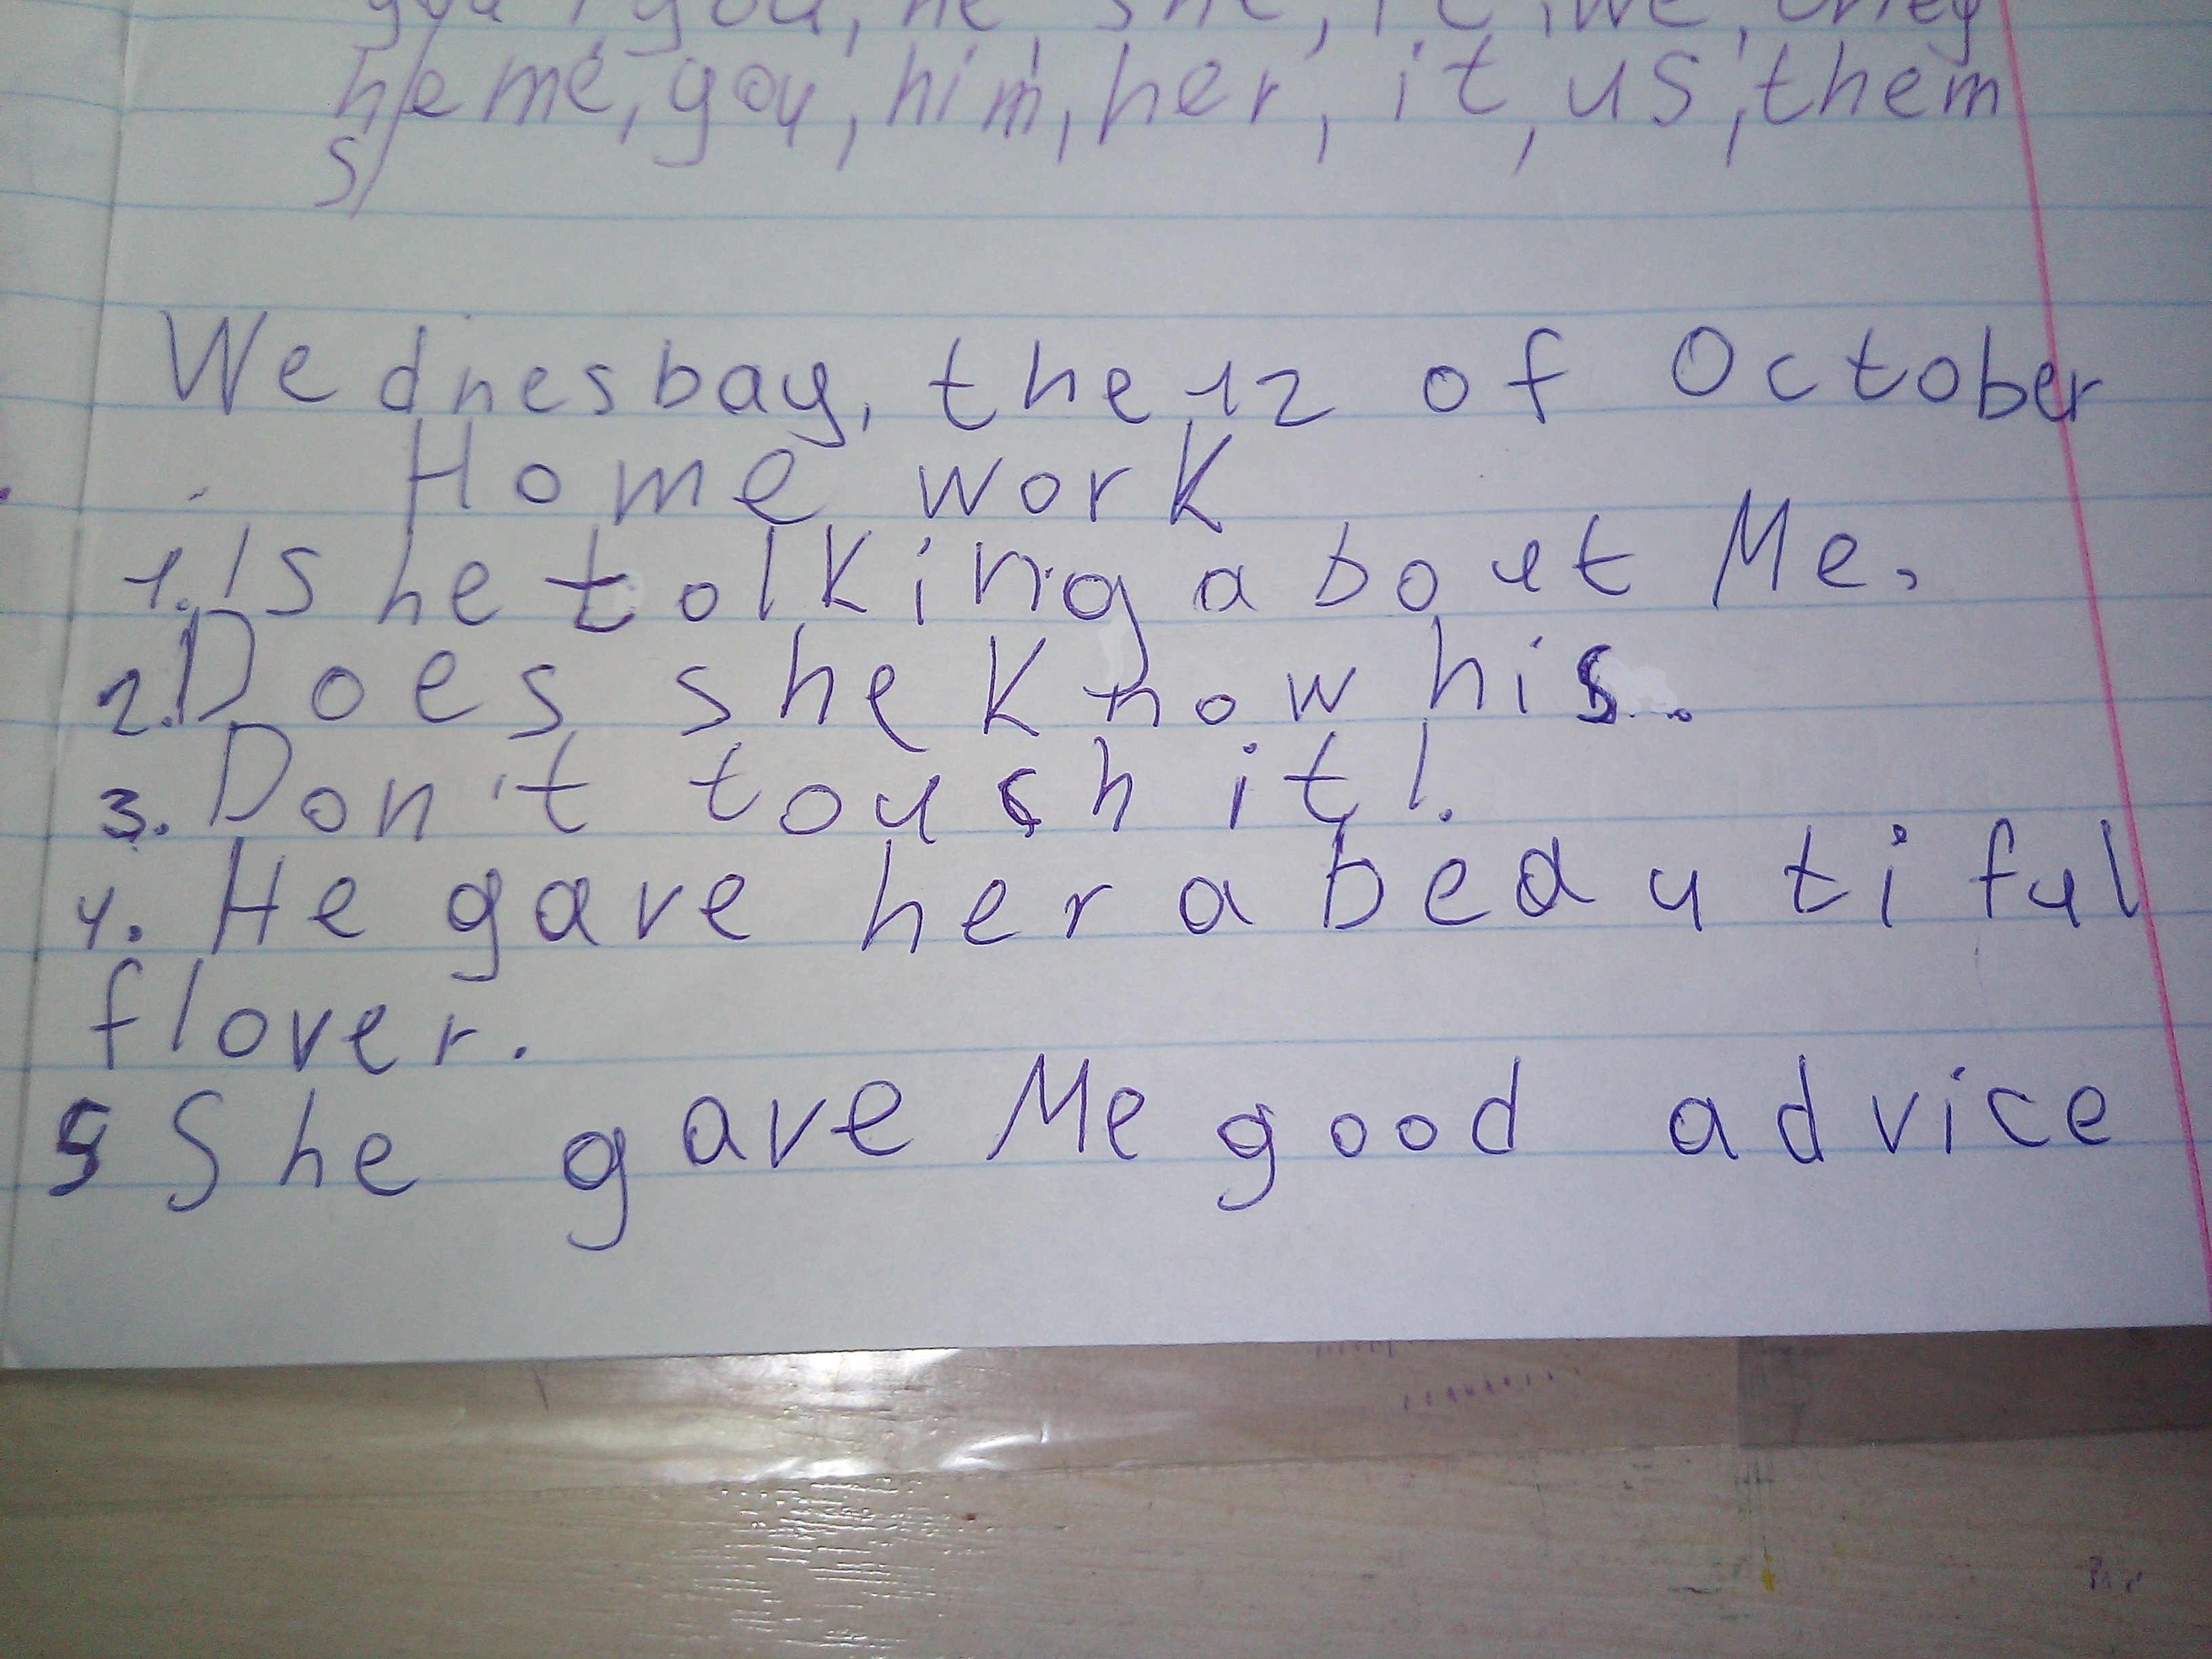 you, you, he she, it, we, they
he me, you, him, her, it, us, them
s/
Wednesbay, the 12 of October
Home work
1. Is he tolking about Me.
2. Does she know his.
3. Don't touch it!
4. He gave her a beautiful
flover.
5 She gave Me good advice